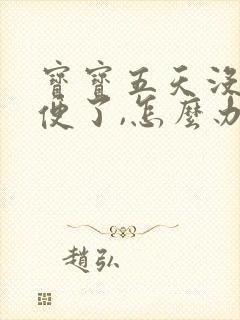 寶寶五天沒
便了,怎麼办
趙弘